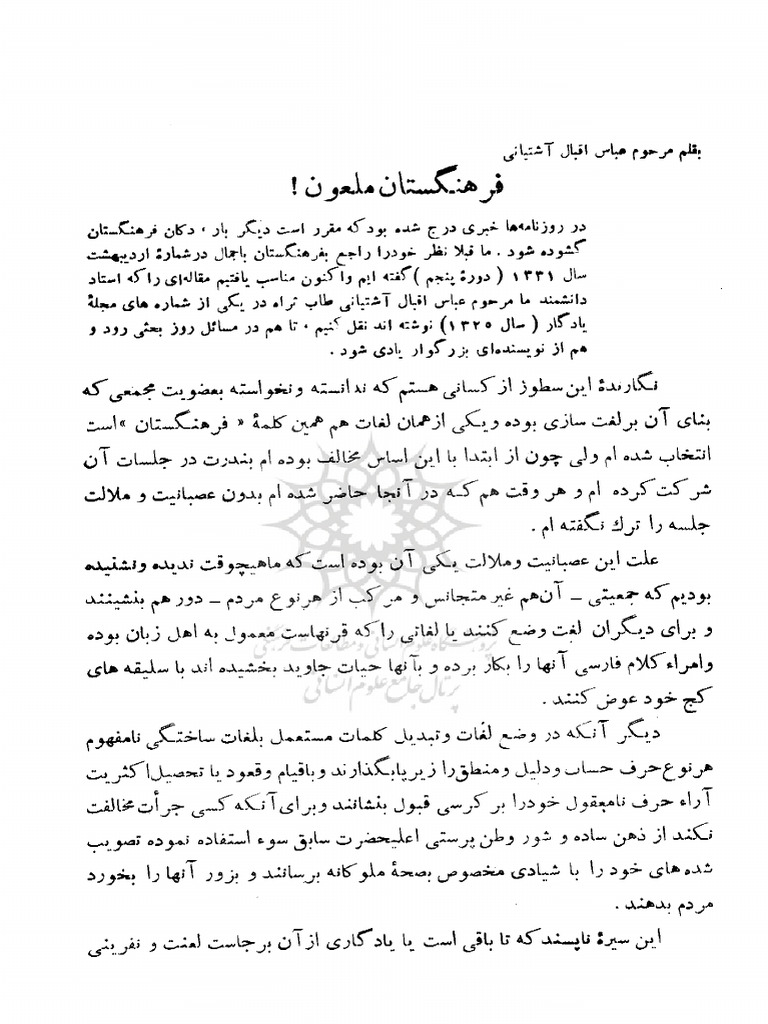 بقلم مرحوم عباس اقبال آشتیانی
فرهنگستان ملعون !
در روزنامه‌ها خبری درج شده بود که مقرر است دیگر بار ، دکان فرهنگستان
گشوده شود . ما قبلا نظر خود را راجع بفرهنگستان باجمال در شمارهٔ اردیبهشت
سال ۱۳۳۱ ( دورهٔ پنجم ) گفته ایم واکنون مناسب یافتیم مقاله‌ای را که استاد
دانشمند ما مرحوم عباس اقبال آشتیانی طاب ثراه در یکی از شماره های مجلهٔ
یادگار ( سال ۱۳۲۵) نوشته اند نقل کنیم ، تا هم در مسائل روز بحثی رود و
هم از نویسنده‌ای بزرگوار یادی شود .
نگارندهٔ این سطوز از کسانی هستم که ندانسته ونخواسته بعضویت مجمعی که
بنای آن بر لغت سازی بوده ویکی از همان لغات هم همین کلمهٔ « فرهنگستان » است
انتخاب شده ام ولی چون از ابتدا با این اساس مخالف بوده ام بندرت در جلسات آن
شرکت کرده ام و هر وقت هم که در آنجا حاضر شده ام بدون عصبانیت و ملالت
جلسه را ترك نگفته ام .
علت این عصبانیت وملالت یکی آن بوده است که ماهیچوقت ندیده ونشنیده
بودیم که جمعیتی ـ آن‌هم غیر متجانس و مرکب از هر نوع مردم ـ دور هم بنشینند
و برای دیگران لغت وضع کنند یا لغاتی را که قرنهاست معمول به اهل زبان بوده
وامراء کلام فارسی آنها را بکار برده و بآنها حیات جاوید بخشیده اند با سلیقه های
کج خود عوض کنند .
پژوهشگاه علوم انسانی و مطالعات فرهنگی
پرتال جامع علوم انسانی
دیگر آنکه در وضع لغات وتبدیل کلمات مستعمل بلغات ساختگی نامفهوم
هر نوع حرف حساب ودلیل ومنطق را زیر پا بگذارند و باقیام وقعود یا تحصیل اکثریت
آراء حرف نامعقول خود را بر کرسی قبول بنشانند و برای آنکه کسی جرأت مخالفت
نکند از ذهن ساده و شور وطن پرستی اعلیحضرت سابق سوء استفاده نموده تصویب
شده های خود را با شیادی مخصوص بصحهٔ ملوکانه برسانند و بزور آنها را بخورد
مردم بدهند .
این سیرهٔ ناپسند که تا باقی است یا یادگاری از آن برجاست لعنت و نفرینی